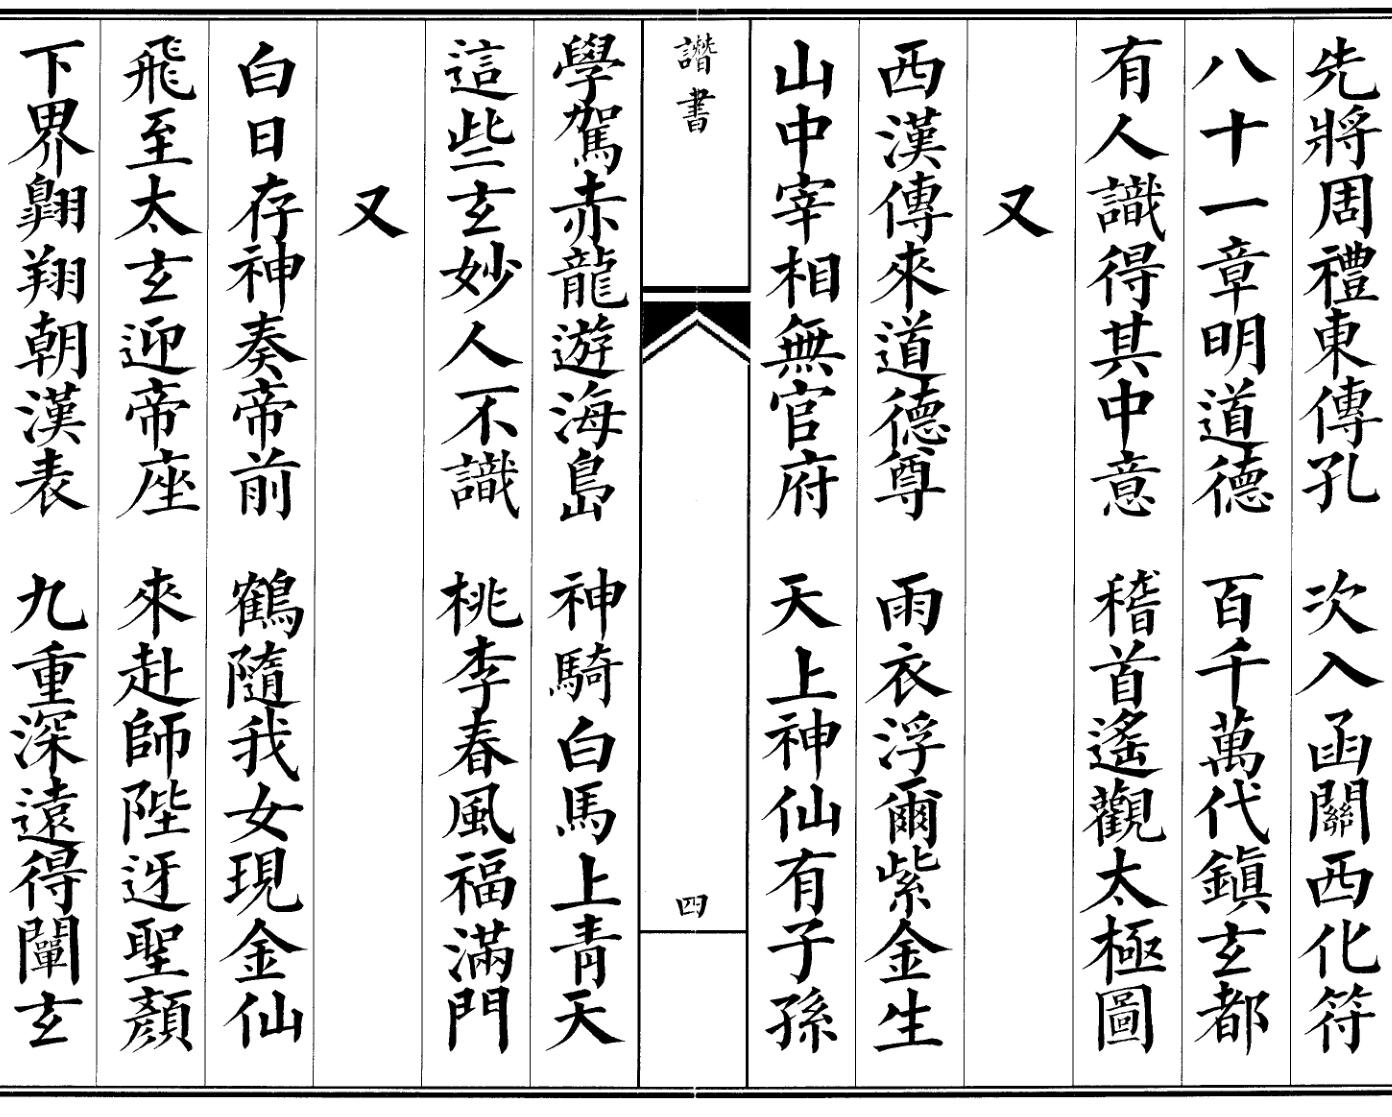 先將周禮東傳孔　次入函關西化符
八十一章明道德　百千萬代鎮玄都
有人識得其中意　稽首遙觀太極圖
又
西漢傳來道德尊　雨衣浮爾紫金生
山中宰相無官府　天上神仙有子孫
譛書
四
學駕赤龍遊海島　神騎白馬上青天
這些玄妙人不識　桃李春風福滿門
又
白日存神奏帝前　鶴隨我女現金仙
飛至太玄迎帝座　來赴師陛迓聖顏
下界翺翔朝漢表　九重深遠得闡玄